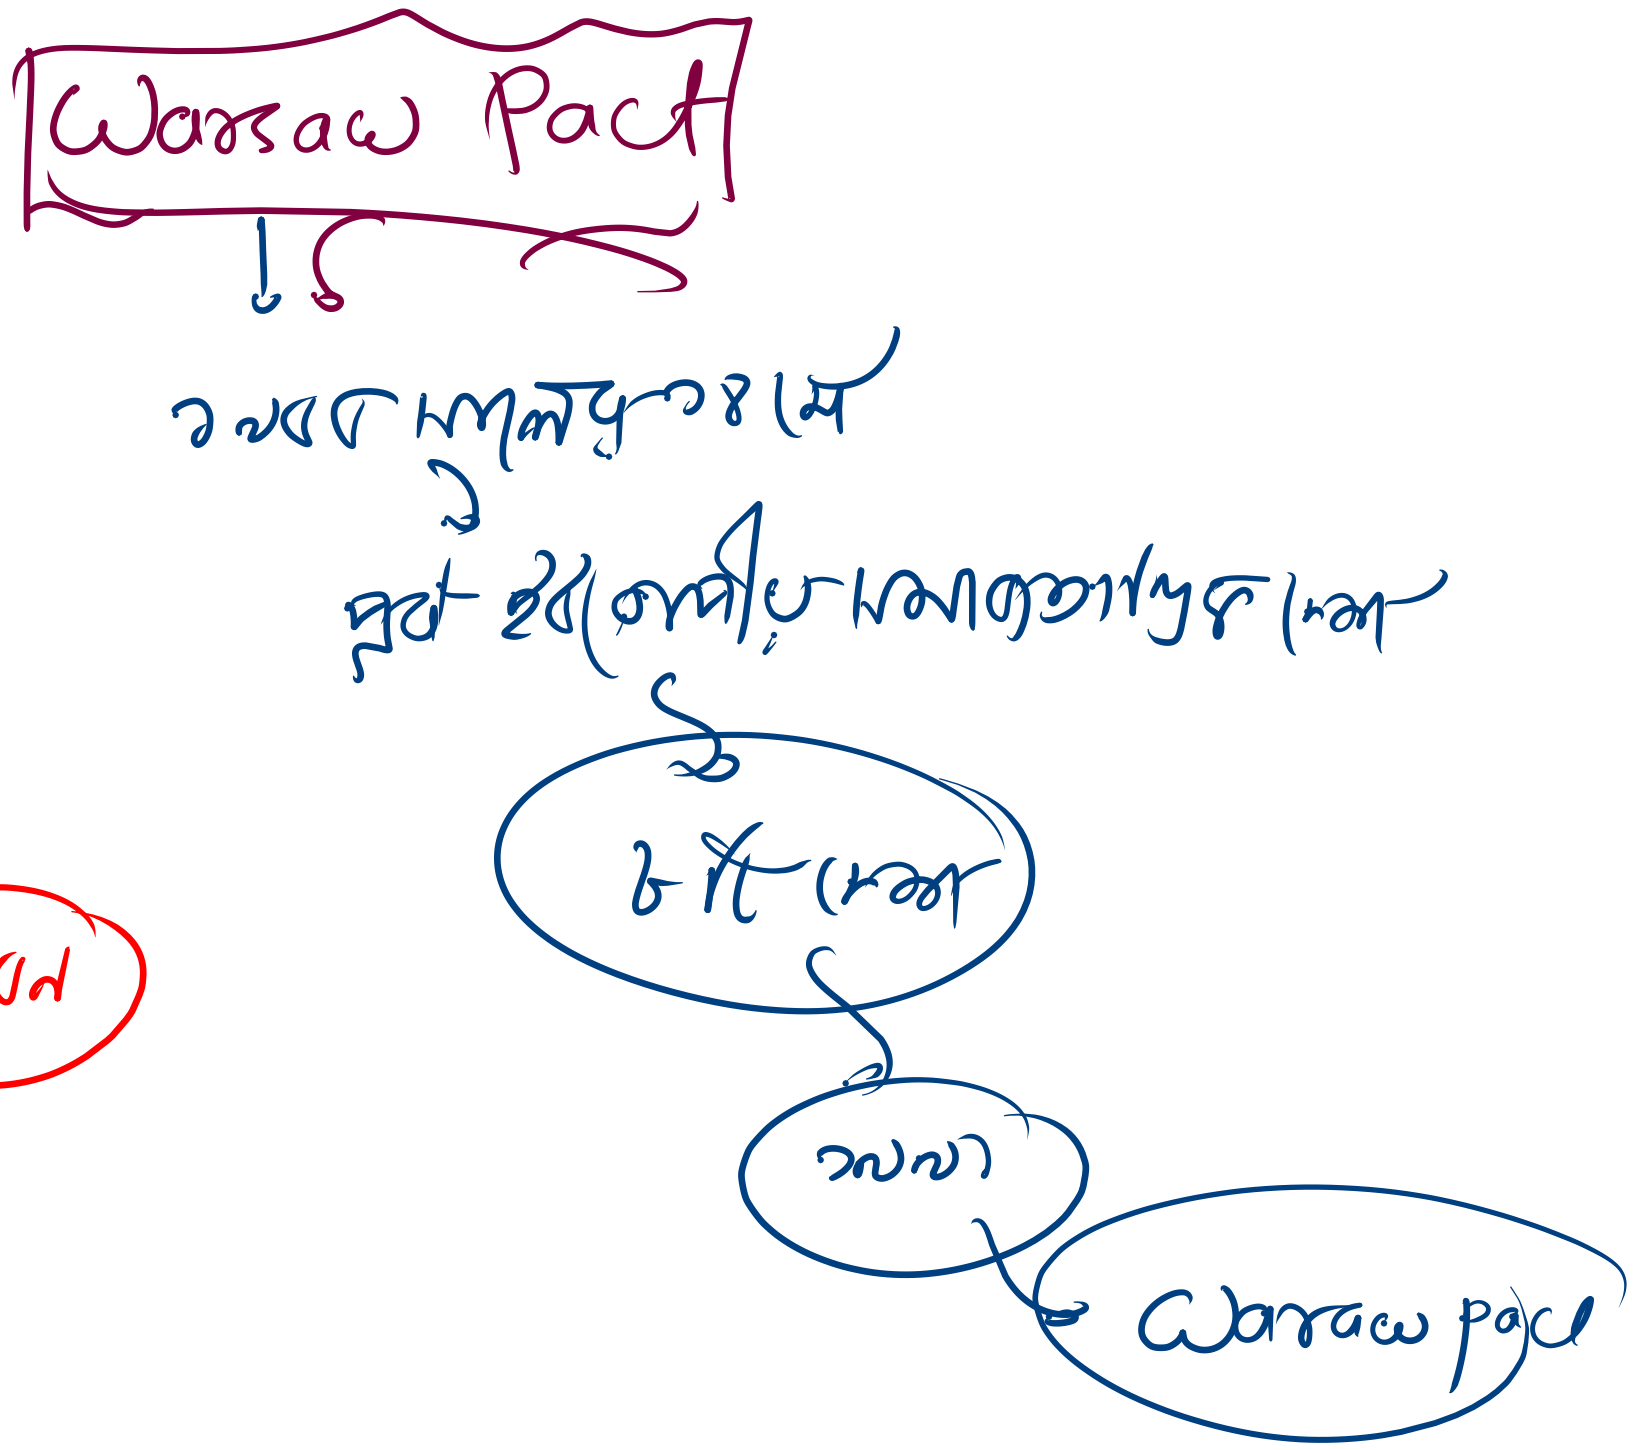 Warsaw Pact
১৯৫৫ সালের ১৪ মে
পূর্ব ইউরোপীয় সমাজতান্ত্রিক দেশ
৮ টি দেশ
১৯৯১
Warsaw pact